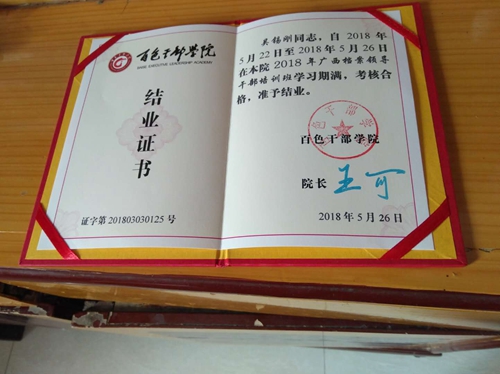 百色干部学院
BAISE EXECUTIVE LEADERSHIP ACADEMY
结业证书
证字第 201803030125 号
吴锡刚同志，自 2018 年
5 月 22 日至 2018 年 5 月 26 日
在本院 2018 年广西档案领导
干部培训班学习期满，考核合
格，准予结业。
百色干部学院
院长 王可
2018 年 5 月 26 日